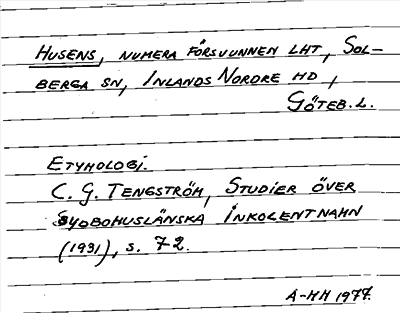 HUSENS, NUMERA FÖRSVUNNEN LHT, SOL-
BERGA SN, INLANDS NORDRE HD,
GÖTEB. L.
ETYMOLOGI.
C. G. TENGSTRÖM, STUDIER ÖVER
SYDBOHUSLÄNSKA INKOLENTNAMN
(1931), S. 72.
A-MH 1977.